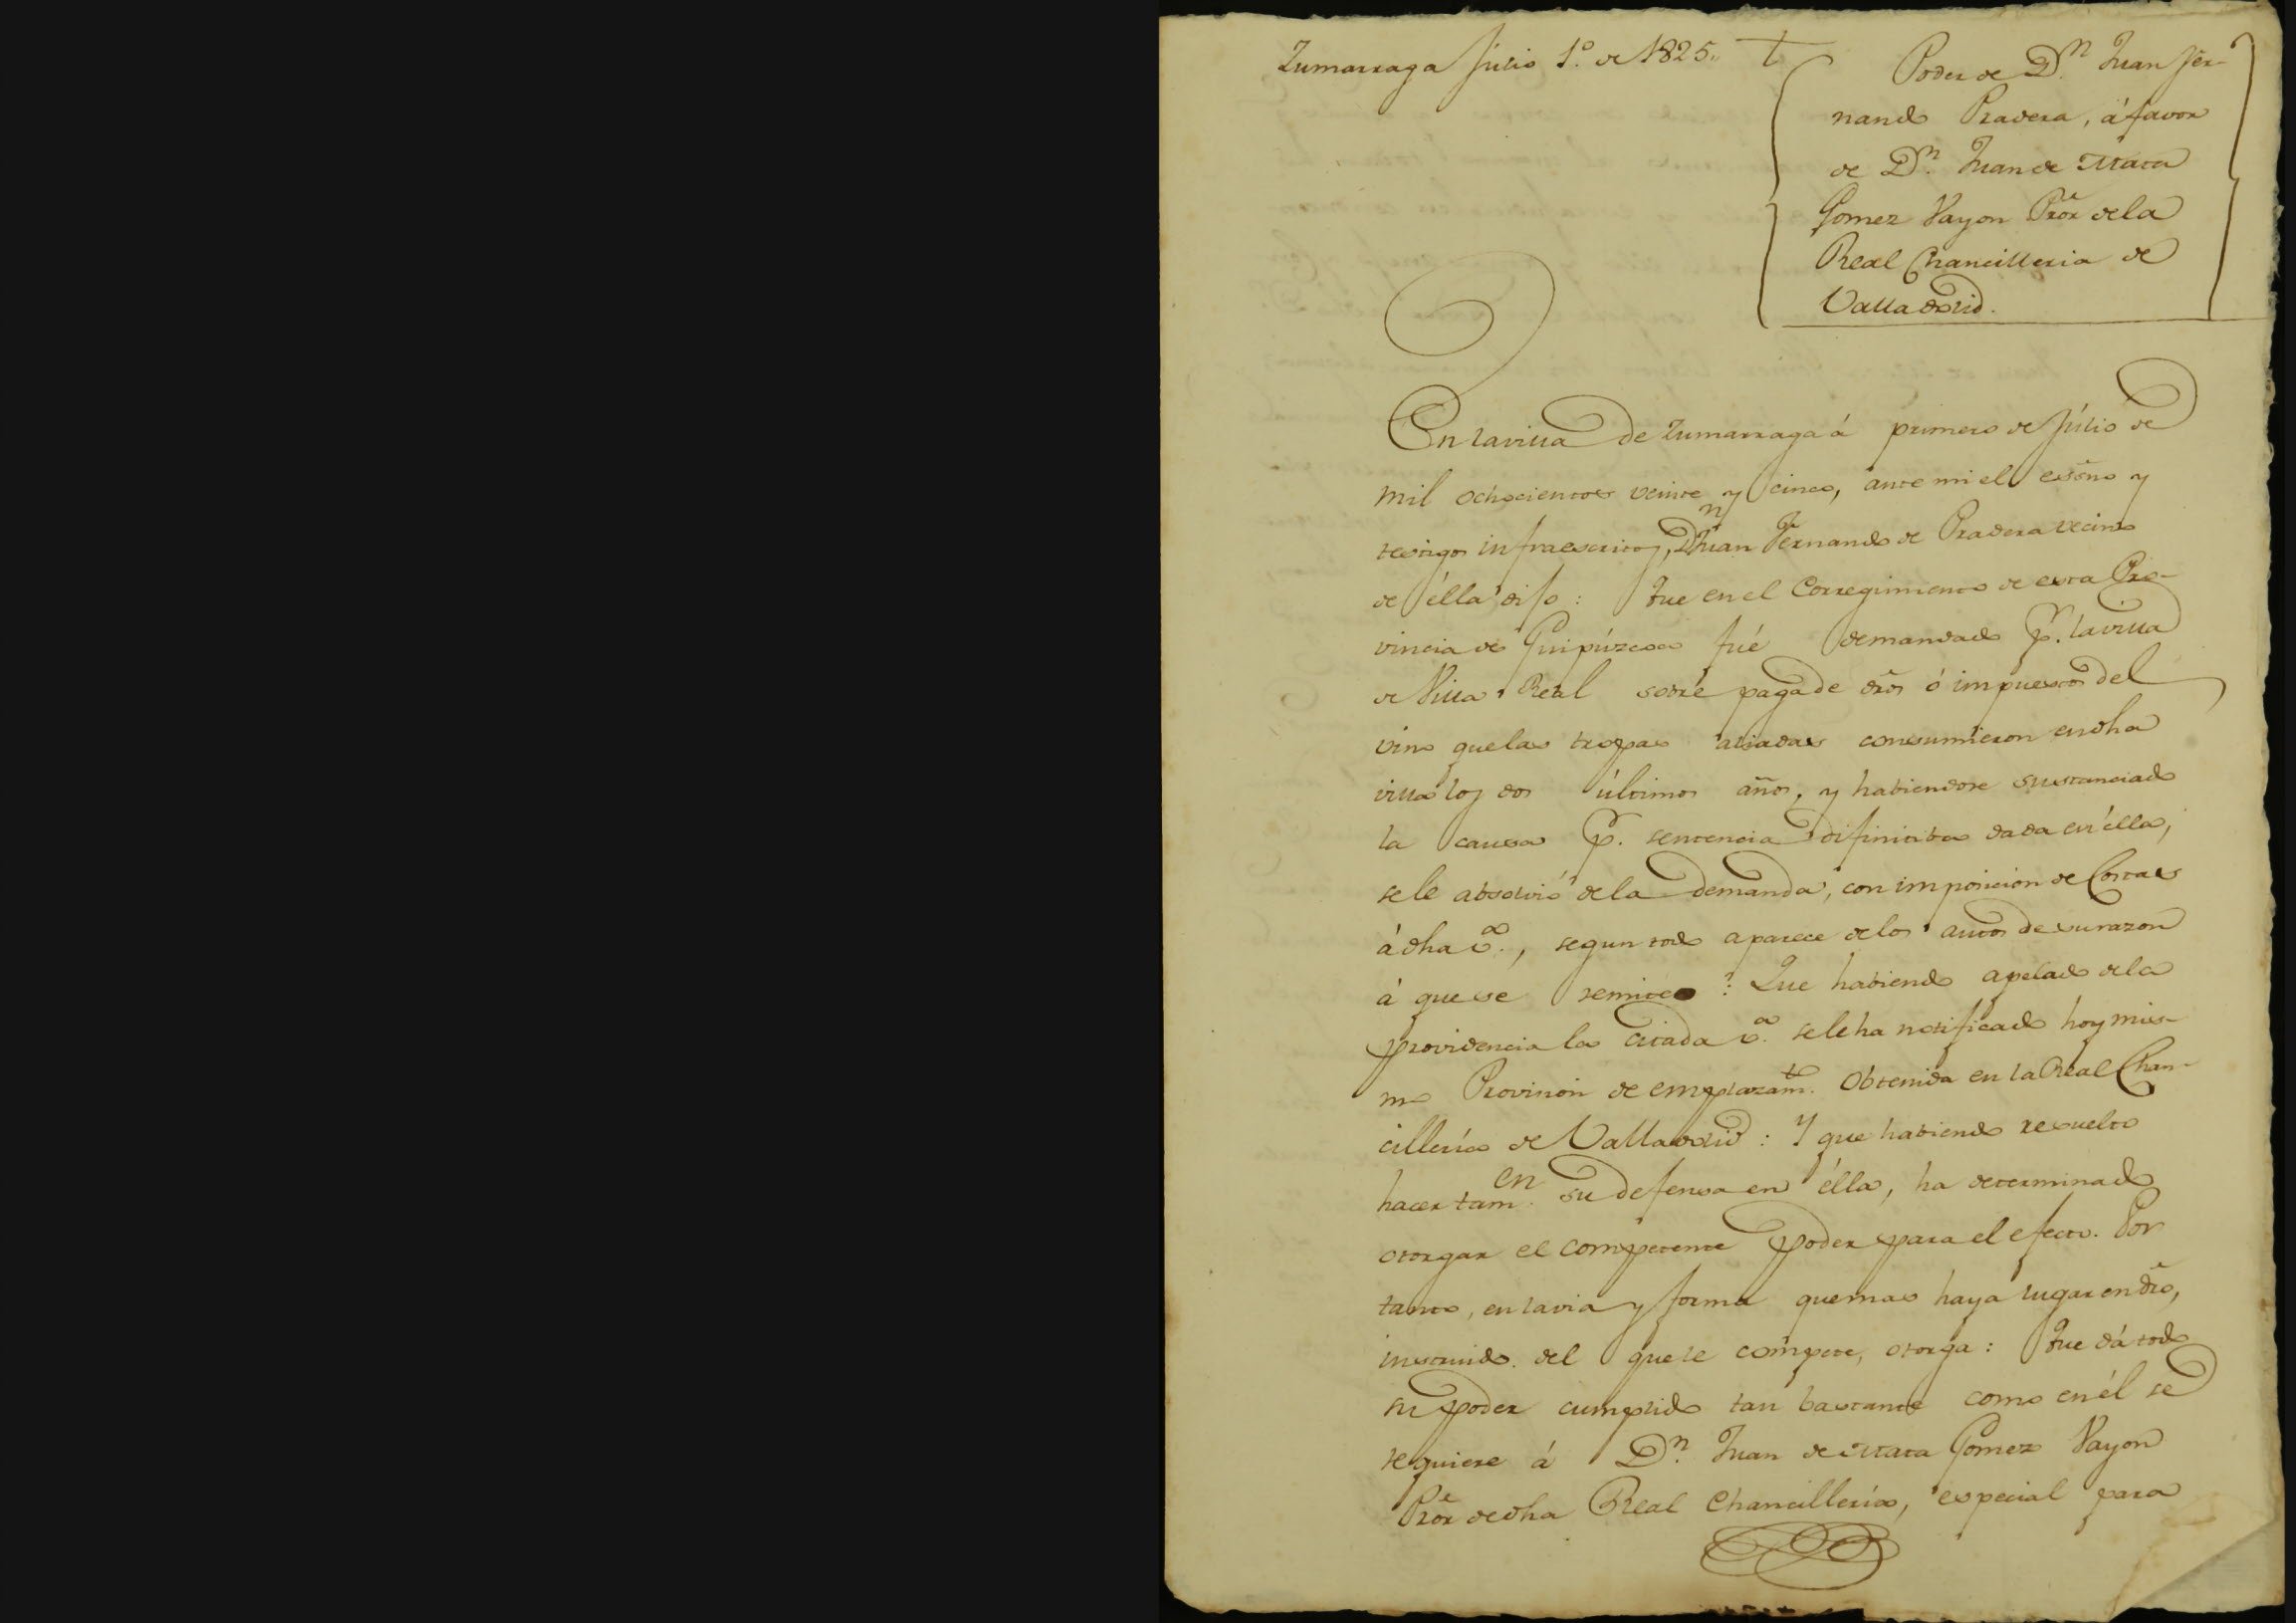 Zumarraga Júlio 1.º de 1825.. †
Poder de D.n Juan Fer-
nando Pradera, á favor
de D.n Juan de Mata
Gomez Vayon Pror de la
Real Chancilleria de
Valladolid.
En la villa de Zumarraga á primero de Júlio de
mil ochocientos veinte y cinco, ante mi el essno y
testigos infraescritos, Dn Juan Fernando de Pradera vecino
de élla dijo: Que en el Corregimiento de esta Pro-
vincia de Guipúzcoa fué demandado pr. la villa
de Villa Real sobre paga de dros ó impuestos del
vino que las tropas aliadas consumieron en dha
villa los dos últimos años, y habiendose sustanciado
la causa pr. sentencia difinitiba dada en élla,
se le absolvió de la demanda, con imposicion de Costas
á dha v.a, segun todo aparece de los autos de su razon
á que se remite: Que habiendo apelado de la
providencia la citada v.a se le ha notificado hoy mis-
mo Provision de emplazam.to Obtenida en la Real Chan-
cillería de Valladolid: Y que habiendo resuelto
hacer tam.en su defensa en élla, ha determinado
otorgar el competente poder para el efecto. Por
tanto, en la via y forma que mas haya lugar en dro,
instruido del que le compete, otorga: Que dá todo
su poder cumplido tan bastante como en él se
requiere á D.n Juan de Mata Gomez Vayon
Pror de dha Real Chancillería, especial para